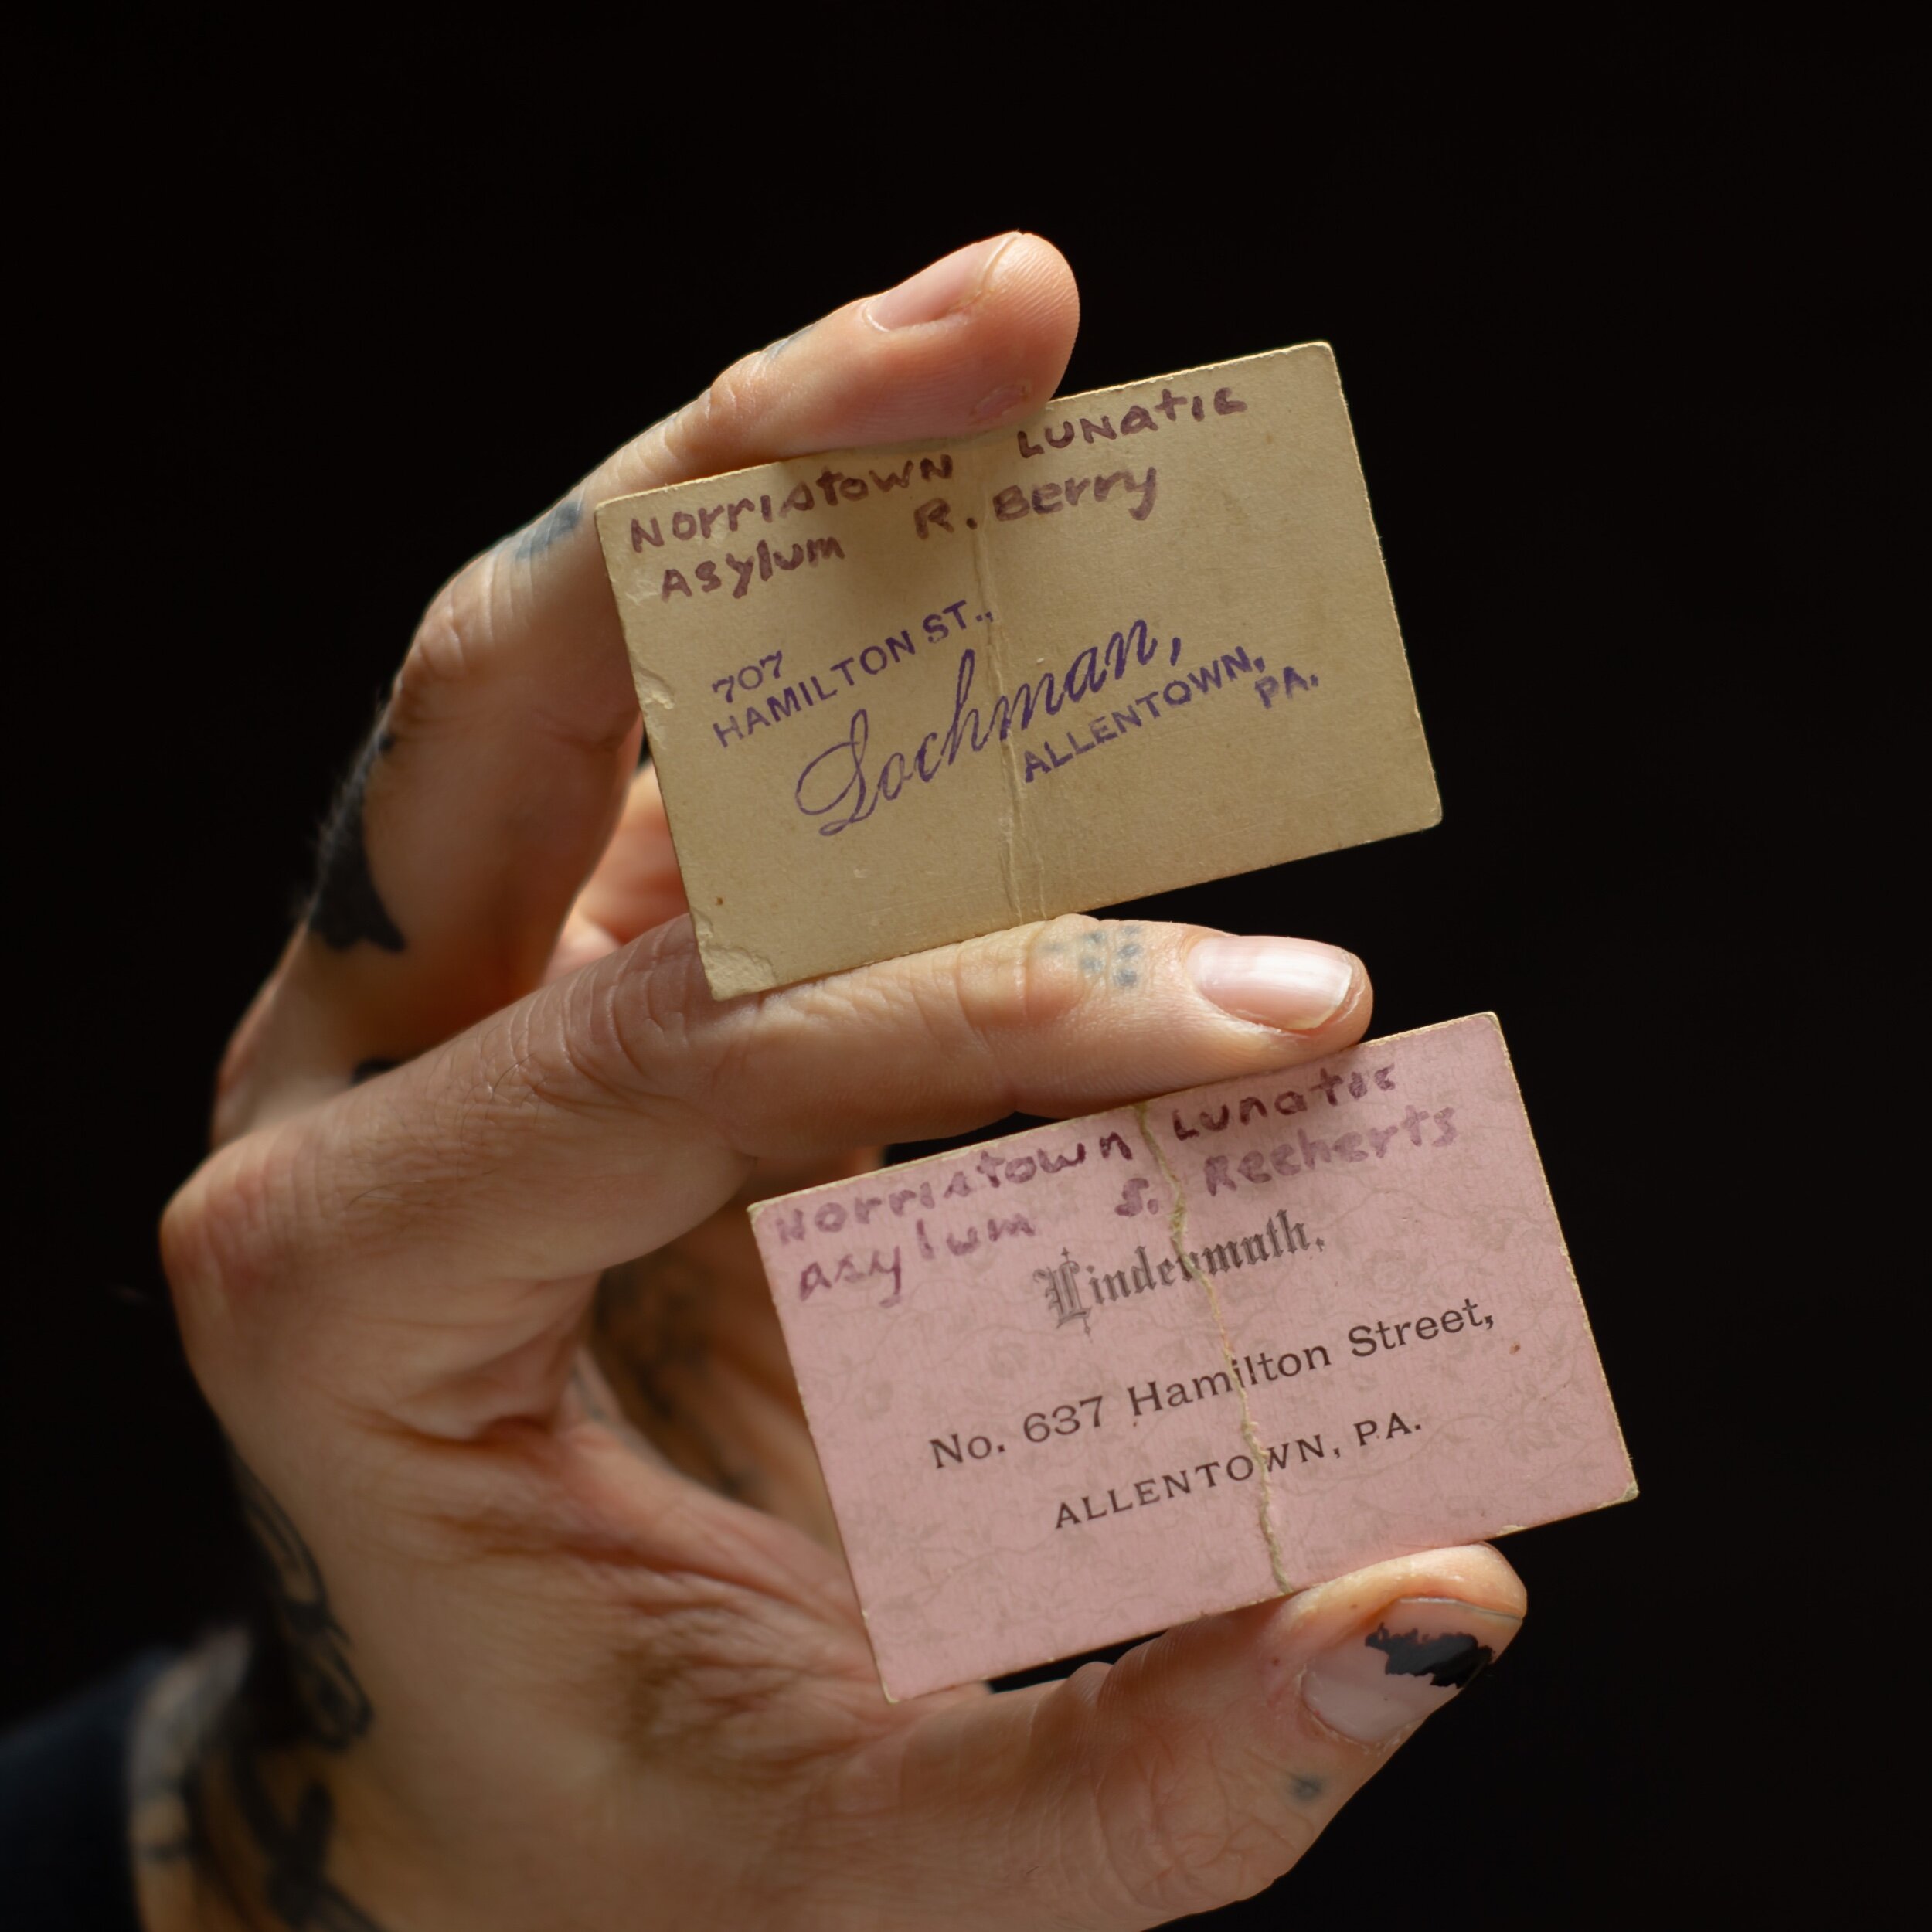 Norristown Lunatic
Asylum R. Berry
707
HAMILTON ST.,
Lochman,
ALLENTOWN,
PA.
Norristown Lunatic
Asylum S. Recherts
Lindenmuth,
No. 637 Hamilton Street,
ALLENTOWN, PA.